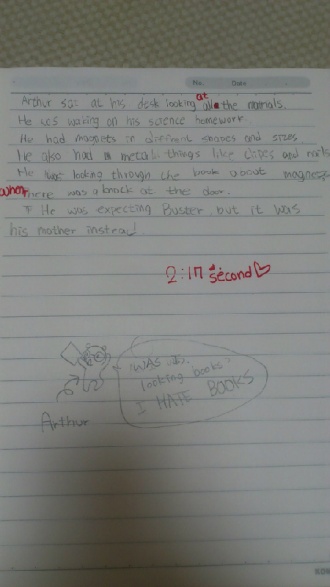 No. Date
Arthur sat at his desk looking at all the materials.
He was working on his science homework.
He had magnets in different shapes and sizes
He also had metal things like clips and nails
He was looking through the book about magnets
when there was a knock at the door.
He was expecting Buster, but it was
his mother instead
2:17 second
WAS
looking books
I HATE BOOKS
Arthur